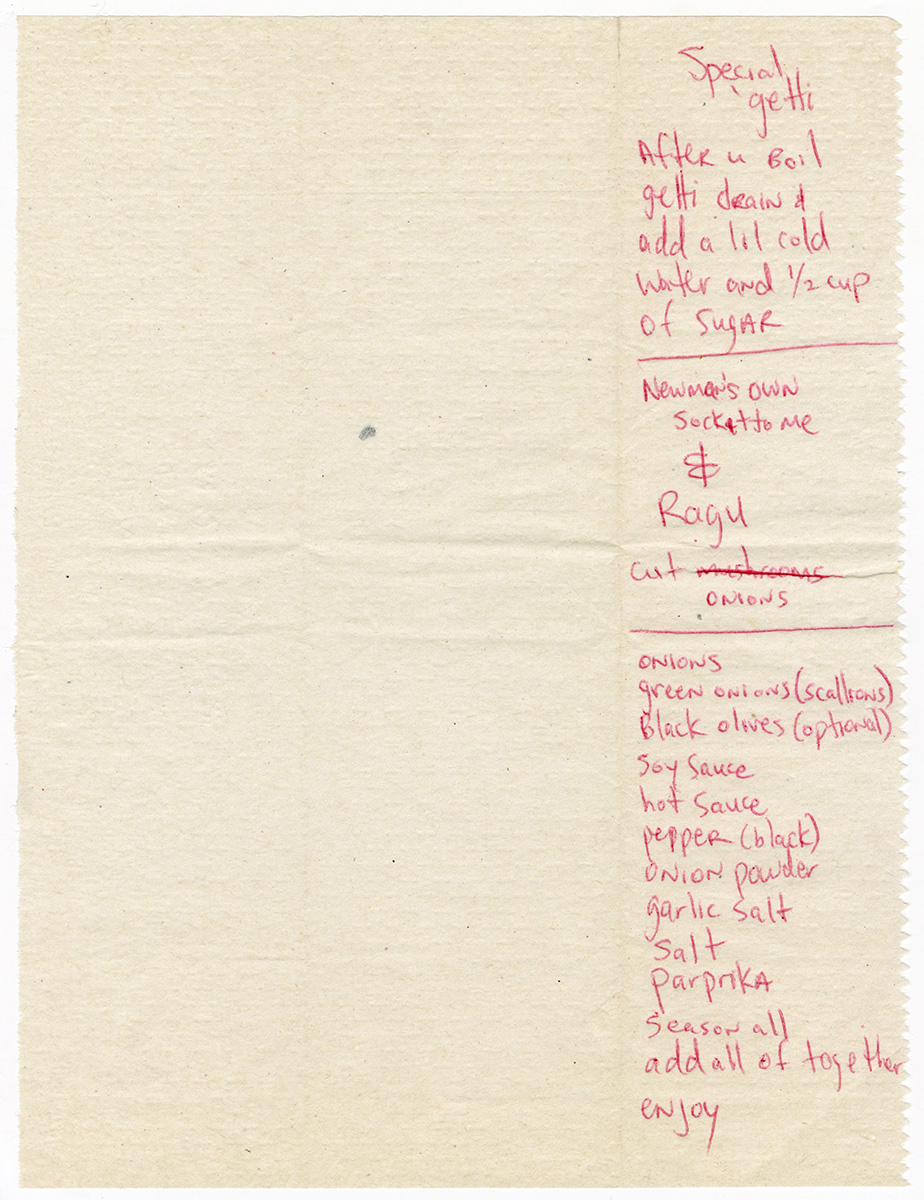 Special
'getti
After u Boil
getti drain &
add a lil cold
water and 1/2 cup
of sugar
Newman's own
Sockittome
&
Ragu
cut ~~mushrooms~~
onions
onions
green onions (scallions)
Black olives (optional)
soy sauce
hot sauce
pepper (black)
onion powder
garlic salt
salt
parprika
season all
add all of together
enjoy